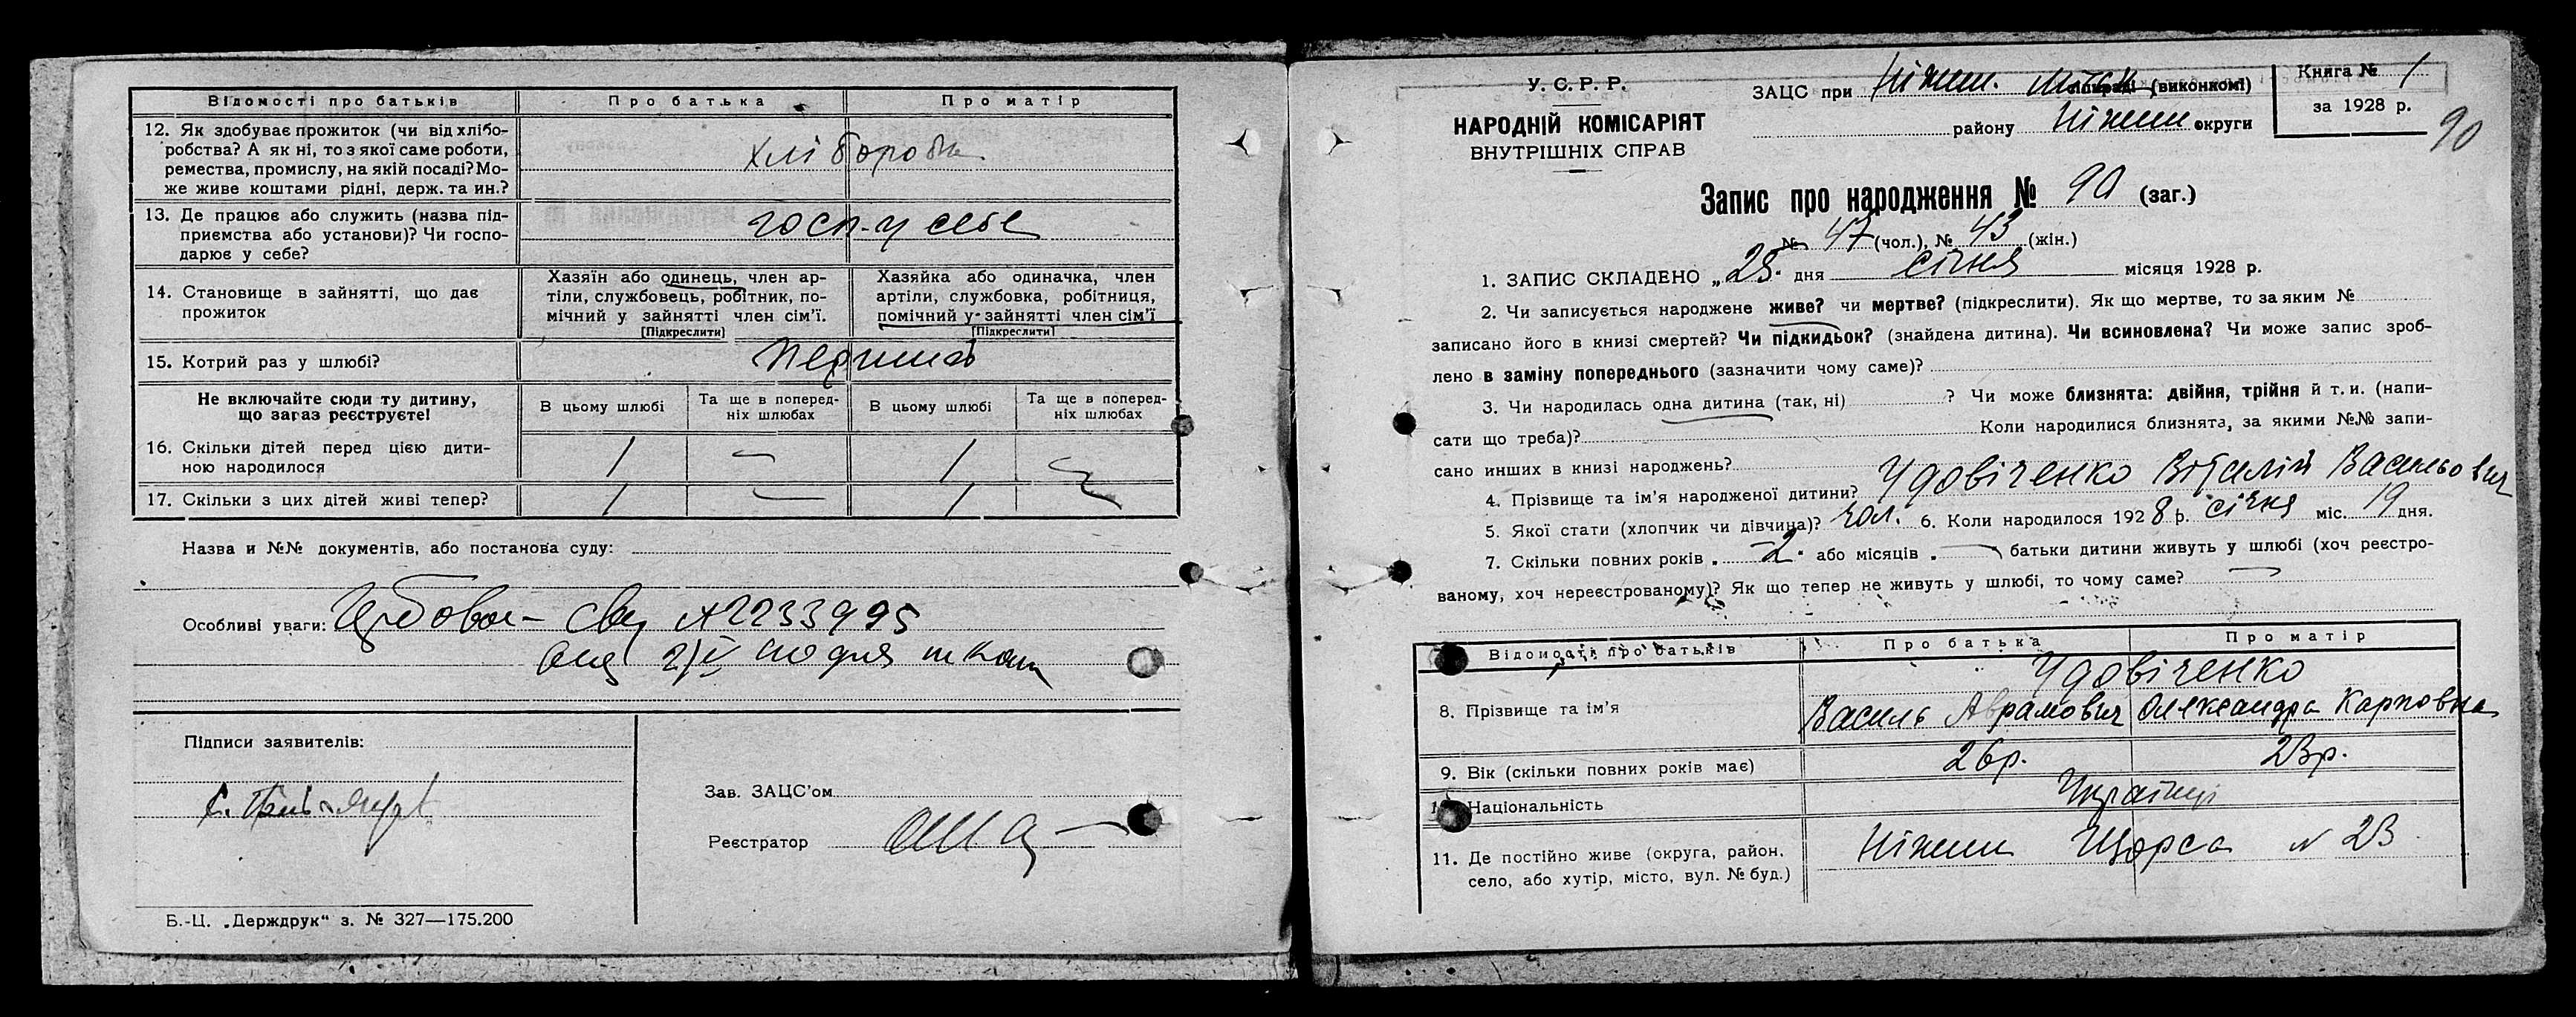 Відомості про батьків
Про батька
Про матір
12. Як здобуває прожиток (чи від хлібо-
робства? А як ні, то з якої саме роботи,
ремества, промислу, на якій посаді? Мо-
же живе коштами рідні, держ. та ин.?
хліборобн
13. Де працює або служить (назва під-
приємства або установи)? Чи госпо-
дарює у себе?
госп. у себе
14. Становище в зайнятті, що дає
прожиток
Хазяїн або одинець, член ар-
тіли, службовець, робітник, по-
мічний у зайнятті член сім'ї.
[Підкреслити]
Хазяйка або одиначка, член
артіли, службовка, робітниця,
помічний у зайнятті член сім'ї
[Підкреслити]
15. Котрий раз у шлюбі?
Перший
Не включайте сюди ту дитину,
що зараз реєструєте!
В цьому шлюбі
Та ще в поперед-
ніх шлюбах
В цьому шлюбі
Та ще в поперед-
ніх шлюбах
16. Скільки дітей перед цією дити-
ною народилося
1 — 1 —
17. Скільки з цих дітей живі тепер?
1 — 1 —
Назва и №№ документів, або постанова суду:
Особливі уваги: А2233995
Підписи заявителів:
Зав. ЗАЦС'ом
Реєстратор
Б.-Ц. „Держдрук" з. № 327—175.200
У. С. Р. Р.
НАРОДНІЙ КОМІСАРІЯТ
ВНУТРІШНІХ СПРАВ
ЗАЦС при Ніжин. міськ (виконкомі)
району Ніжин округи
Книга № 1
за 1928 р.
90
Запис про народження № 90 (заг.)
№ 47 (чол.), № 43 (жін.)
1. ЗАПИС СКЛАДЕНО „25" дня січня місяця 1928 р.
2. Чи записується народжене живе? чи мертве? (підкреслити). Як що мертве, то за яким №
записано його в книзі смертей? Чи підкидьок? (знайдена дитина). Чи всиновлена? Чи може запис зроб-
лено в заміну попереднього (зазначити чому саме)?
3. Чи народилась одна дитина (так, ні) ? Чи може близнята: двійня, трійня й т. и. (напи-
сати що треба)? Коли народилися близнята, за якими №№ запи-
сано инших в книзі народжень?
4. Прізвище та ім'я народженої дитини? Удовіченко Віталій Васильович
5. Якої статі (хлопчик чи дівчина)? чол. 6. Коли народилося 1928 р. січня міс. 19 дня.
7. Скільки повних років „ 2 " або місяців „ — " батьки дитини живуть у шлюбі (хоч реєстро-
ваному, хоч нереєстрованому)? Як що тепер не живуть у шлюбі, то чому саме? —
Відомості про батьків
Про батька
Про матір
8. Прізвище та ім'я
Удовіченко
Василь Аврамович
Олександра Карповна
9. Вік (скільки повних років має)
26 р.
23 р.
Національність
Українці
11. Де постійно живе (округа, район,
село, або хутір, місто, вул. № буд.)
Ніжин Щорса № 23